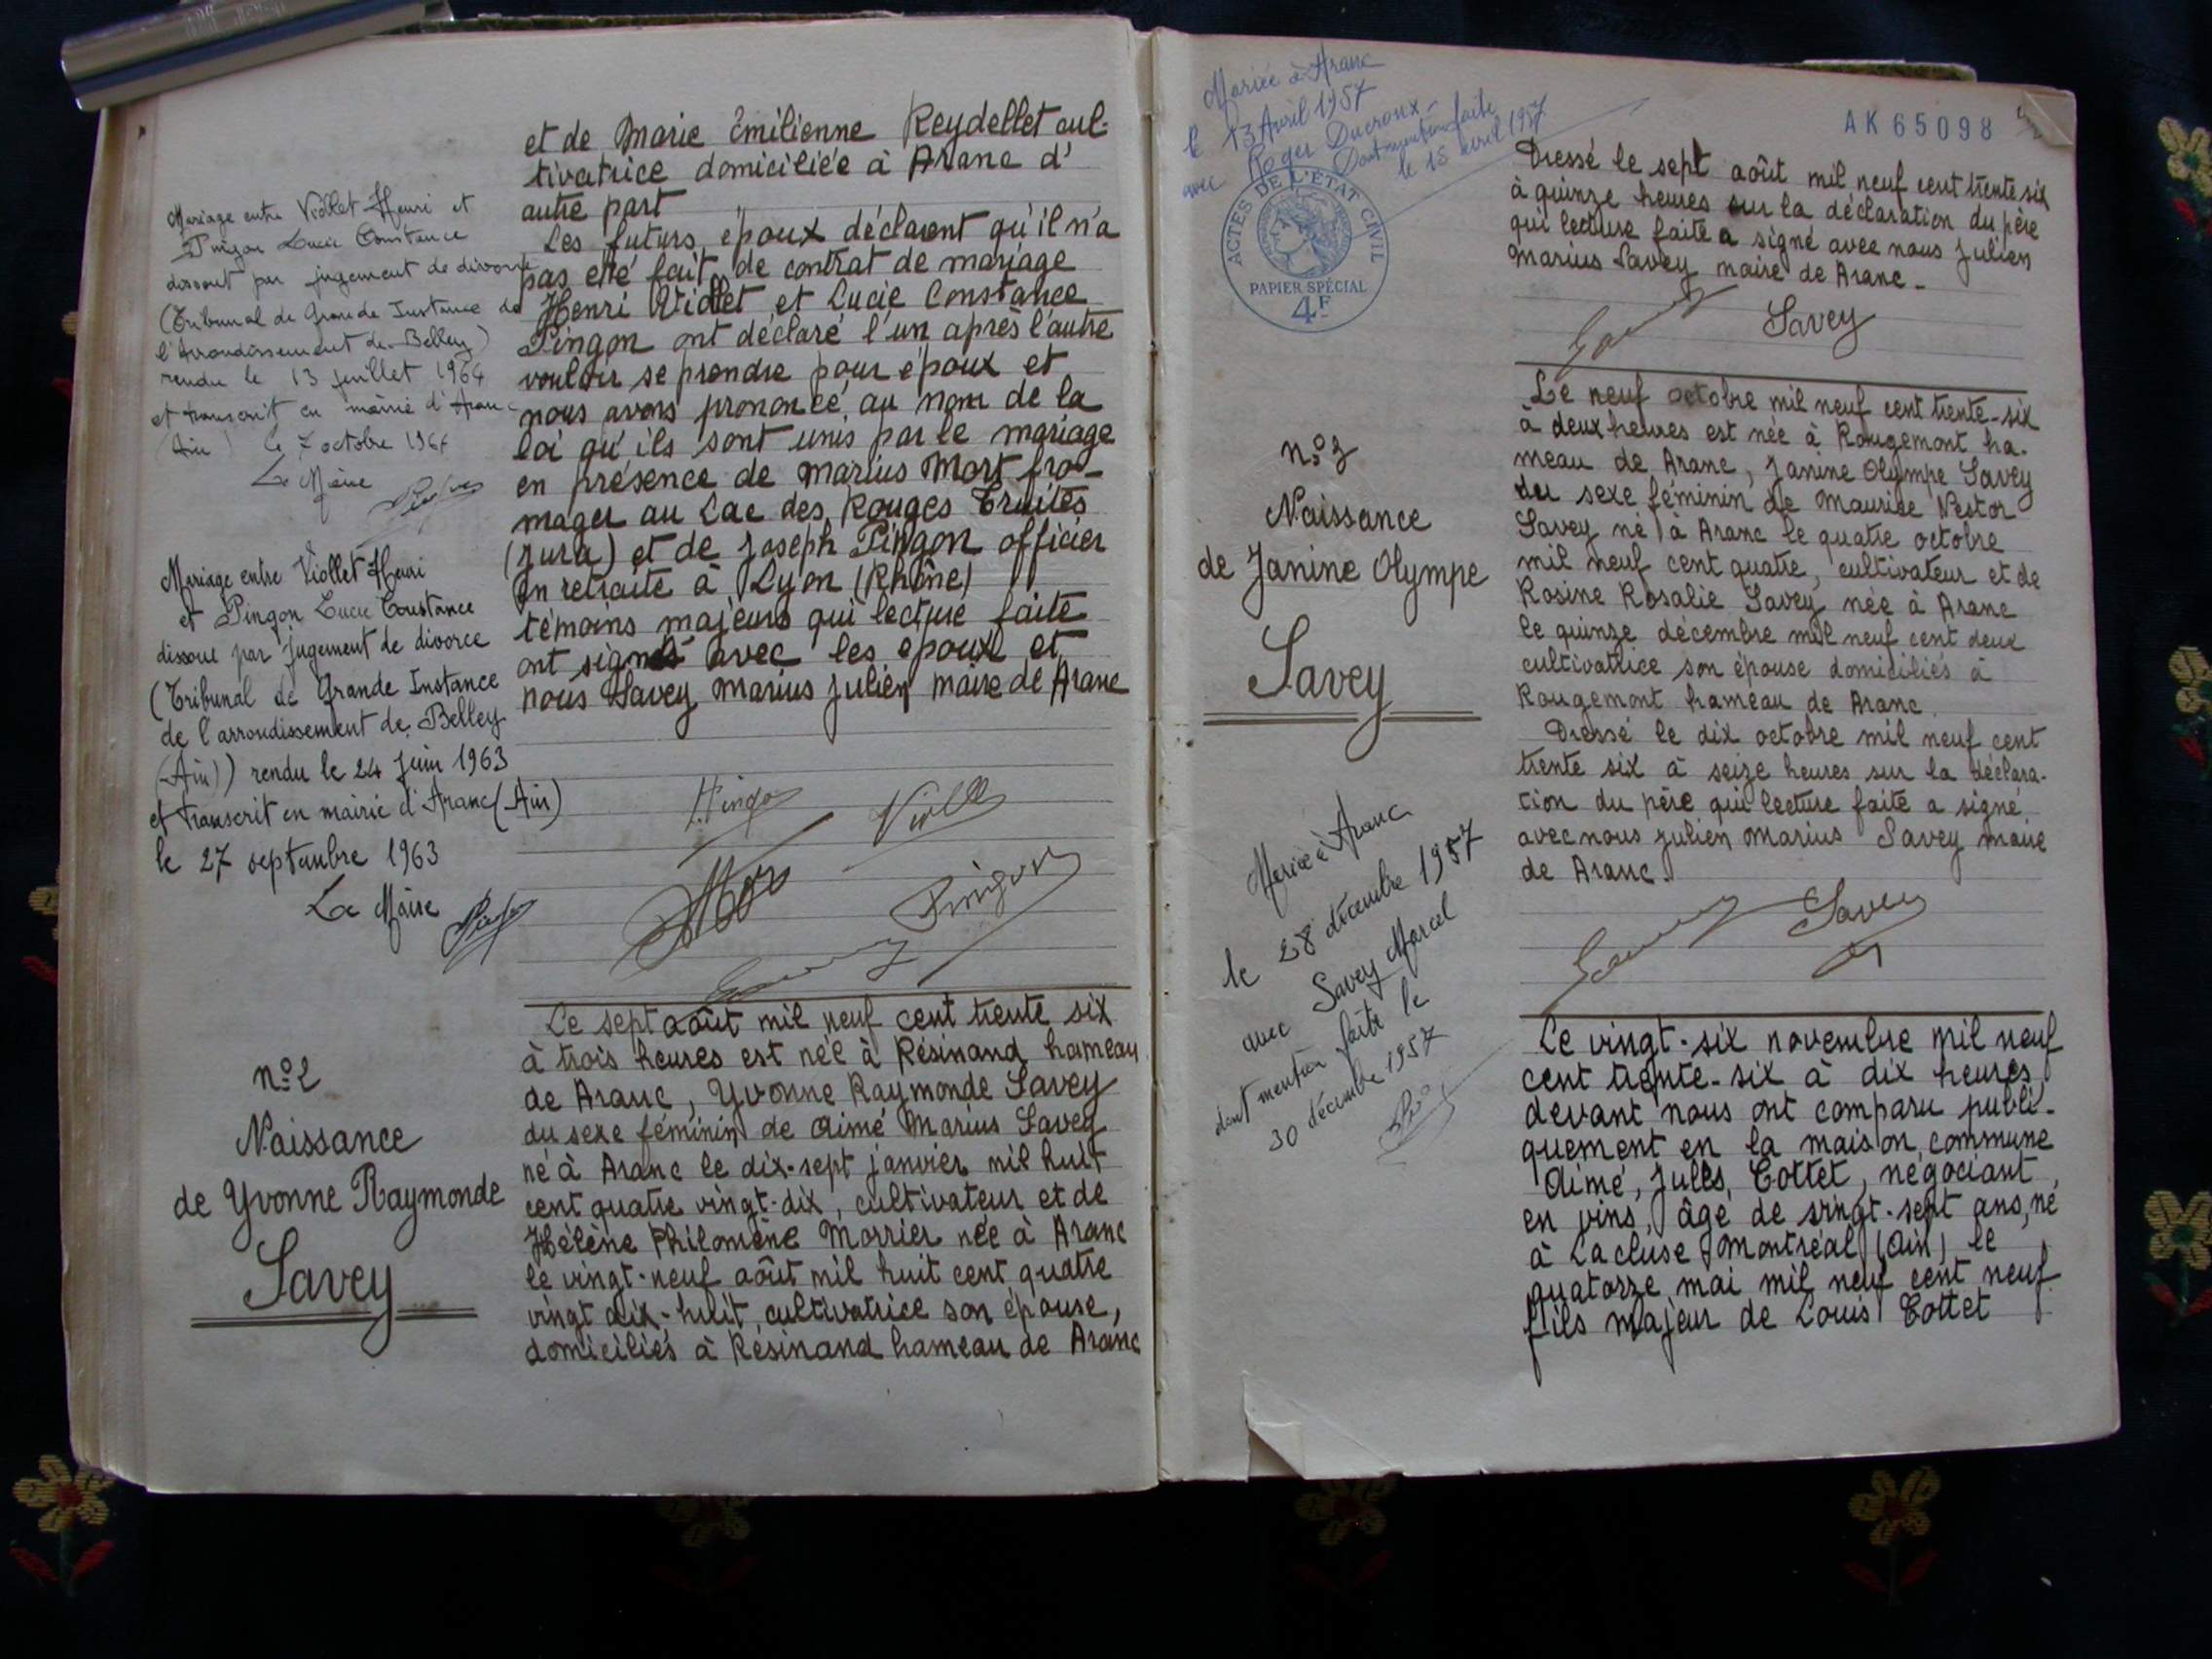 et de Marie Émilienne Reydellet cul-
tivatrice domiciliée à Aranc d'
autre part
Les futurs époux déclarent qu'il n'a
pas été fait de contrat de mariage
Henri Viollet et Lucie Constance
Pingon ont déclaré l'un après l'autre
vouloir se prendre pour époux et
nous avons prononcé au nom de la
loi qu'ils sont unis par le mariage
en présence de Marius Mort fro-
mager au Lac des Rouges Truites
(Jura) et de Joseph Pingon officier
en retraite à Lyon (Rhône)
témoins majeurs qui lecture faite
ont signé avec les époux et
nous Savey Marius Julien maire de Aranc
Pingon
Viollet
Pingon
Mariage entre Viollet Henri et
Pingon Lucie Constance
dissout par jugement de divorce
(Tribunal de Grande Instance de
l'Arrondissement de Belley)
rendu le 13 juillet 1964
et transcrit en mairie d'Aranc
(Ain) le 7 octobre 1964
Le Maire
Mariage entre Viollet Henri
et Pingon Lucie Constance
dissous par jugement de divorce
(Tribunal de Grande Instance
de l'arrondissement de Belley
(Ain)) rendu le 24 Juin 1963
et transcrit en mairie d'Aranc (Ain)
le 27 septembre 1963
Le Maire
N° 2
Naissance
de Yvonne Raymonde
Savey
Le sept août mil neuf cent trente six
à trois heures est née à Résinand hameau
de Aranc, Yvonne Raymonde Savey
du sexe féminin de Aimé Marius Savey
né à Aranc le dix-sept janvier mil huit
cent quatre vingt-dix, cultivateur et de
Hélène Philomène Morrier née à Aranc
le vingt-neuf août mil huit cent quatre
vingt dix-huit, cultivatrice son épouse,
domiciliés à Résinand hameau de Aranc
Mariée à Aranc
le 13 Avril 1957
avec Roger Ducroux -
Dont mention faite
le 15 avril 1957
ACTES DE L'ÉTAT CIVIL
PAPIER SPÉCIAL
4F
AK65098
Dressé le sept août mil neuf cent trente six
à quinze heures sur la déclaration du père
qui lecture faite a signé avec nous Julien
Marius Savey maire de Aranc -
Savey
N° 3
Naissance
de Janine Olympe
Savey
Le neuf octobre mil neuf cent trente-six
à deux heures est née à Rougemont ha-
meau de Aranc, Janine Olympe Savey
du sexe féminin de Maurice Nestor
Savey né à Aranc le quatre octobre
mil neuf cent quatre, cultivateur et de
Rosine Rosalie Savey née à Aranc
le quinze décembre mil neuf cent deux
cultivatrice son épouse domiciliés à
Rougemont hameau de Aranc.
Dressé le dix octobre mil neuf cent
trente six à seize heures sur la déclara-
tion du père qui lecture faite a signé
avec nous Julien Marius Savey maire
de Aranc.
Savey
Mariée à Aranc
le 28 décembre 1957
avec Savey Marcel
dont mention faite le
30 décembre 1957
Le vingt-six novembre mil neuf
cent trente-six à dix heures
devant nous ont comparu publi-
quement en la maison commune
Aimé, Jules, Cottet, négociant
en vins, âgé de vingt-sept ans, né
à La Cluse Montréal (Ain) le
quatorze mai mil neuf cent neuf
fils majeur de Louis Cottet